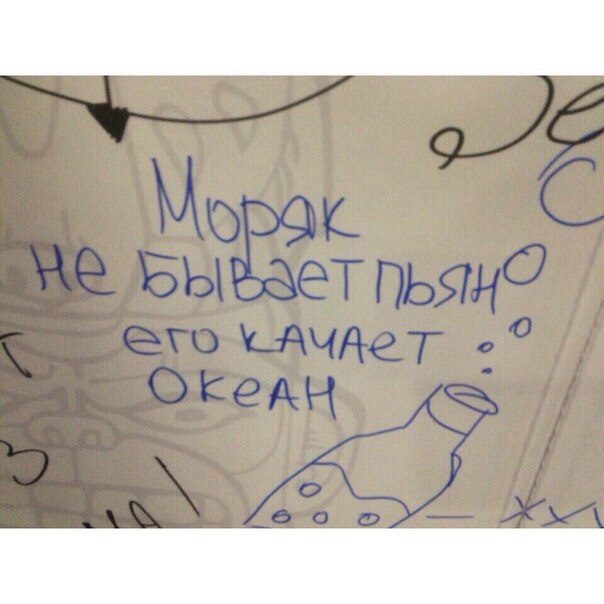 Моряк
не бывает пьян
его качает
океан